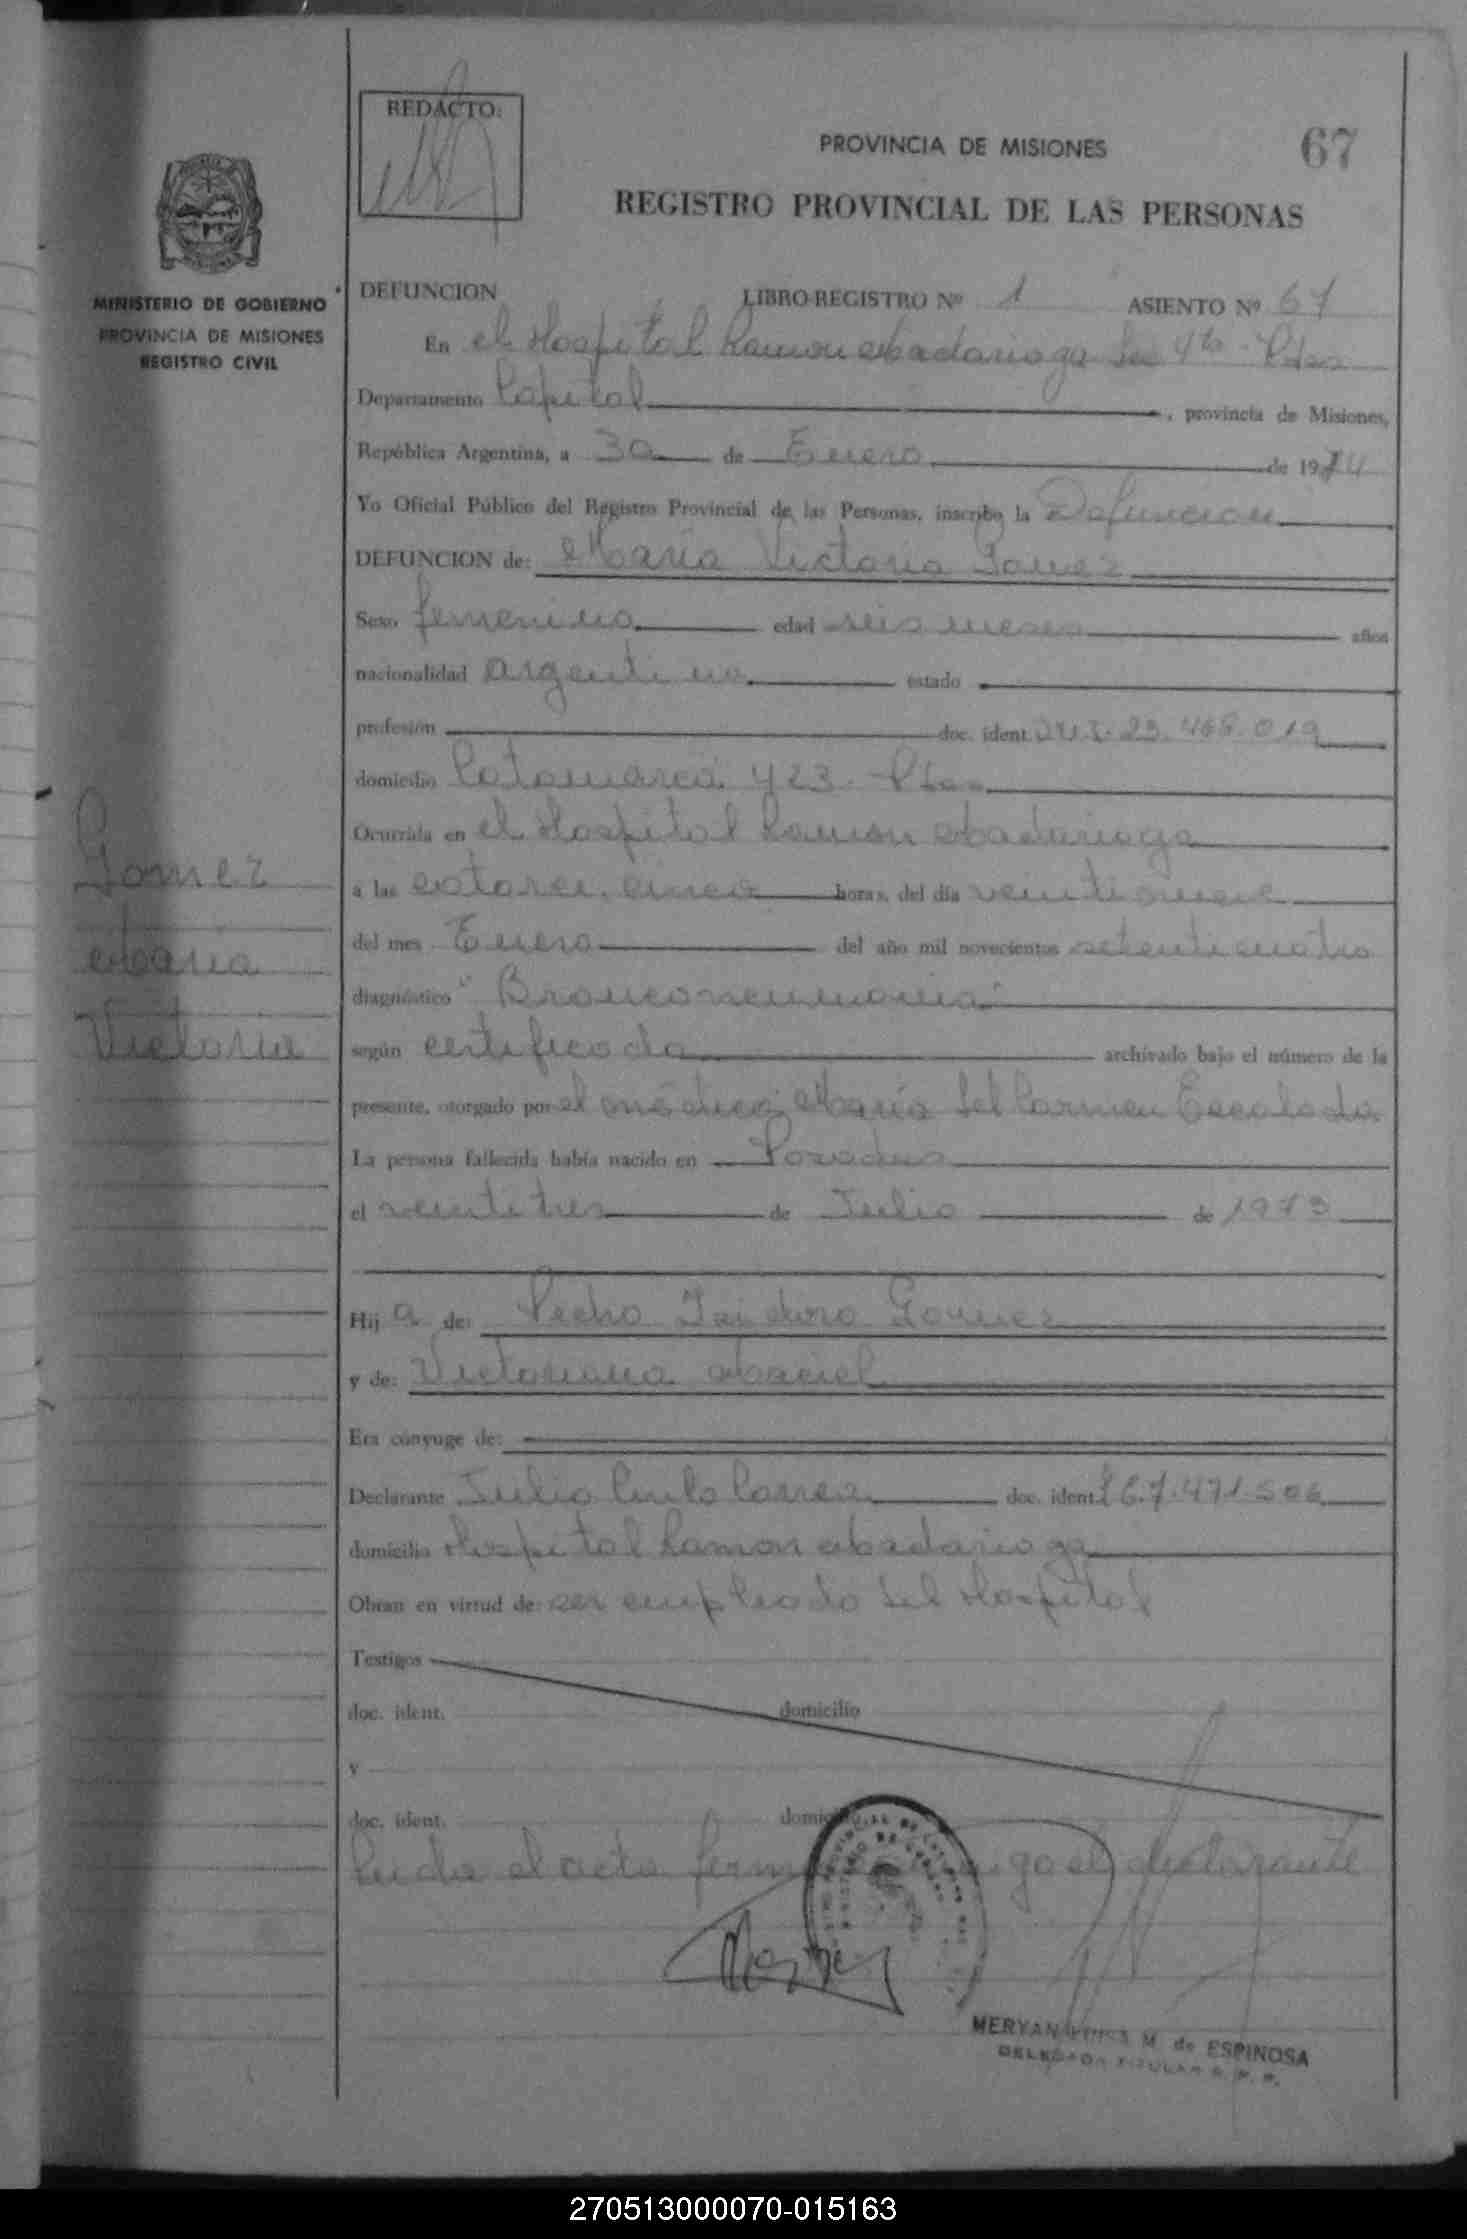 REDACTO:
PROVINCIA DE MISIONES
67
REGISTRO PROVINCIAL DE LAS PERSONAS
MINISTERIO DE GOBIERNO
PROVINCIA DE MISIONES
REGISTRO CIVIL
DEFUNCION LIBRO-REGISTRO Nº 1 ASIENTO Nº 67
En el Hospital Ramon Madariaga Sec 4ta - Pdas
Departamento Capital, provincia de Misiones,
República Argentina, a 30 de Enero de 1974
Yo Oficial Público del Registro Provincial de las Personas, inscribo la Defuncion
DEFUNCION de: Maria Victoria Gomez
Sexo femenino edad seis meses años
nacionalidad argentina estado
profesión doc. ident. 23.468.019
domicilio Catamarca 423 - Pdas
Ocurrida en el Hospital Ramon Madariaga
a las catorce, cinco horas, del día veintinueve
del mes Enero del año mil novecientos setenticuatro
diagnóstico "Bronconeumonia"
según certificado archivado bajo el número de la
presente, otorgado por el médico Maria del Carmen Escalada
La persona fallecida había nacido en Posadas
el veintitres de Julio de 1973
Hij a de: Pedro Isidoro Gomez
y de: Victoriana Maciel
Era cónyuge de:
Declarante Julio Correa doc. ident. 7.471.506
domicilio Hospital Ramon Madariaga
Obran en virtud de: ser empleado del Hospital
Testigos
doc. ident. domicilio
y
doc. ident. domicilio
Leida el acta el declarante
Gomez
Maria
Victoria
MERYAN M. de ESPINOSA
DELEGADA TITULAR R. P. P.
270513000070-015163